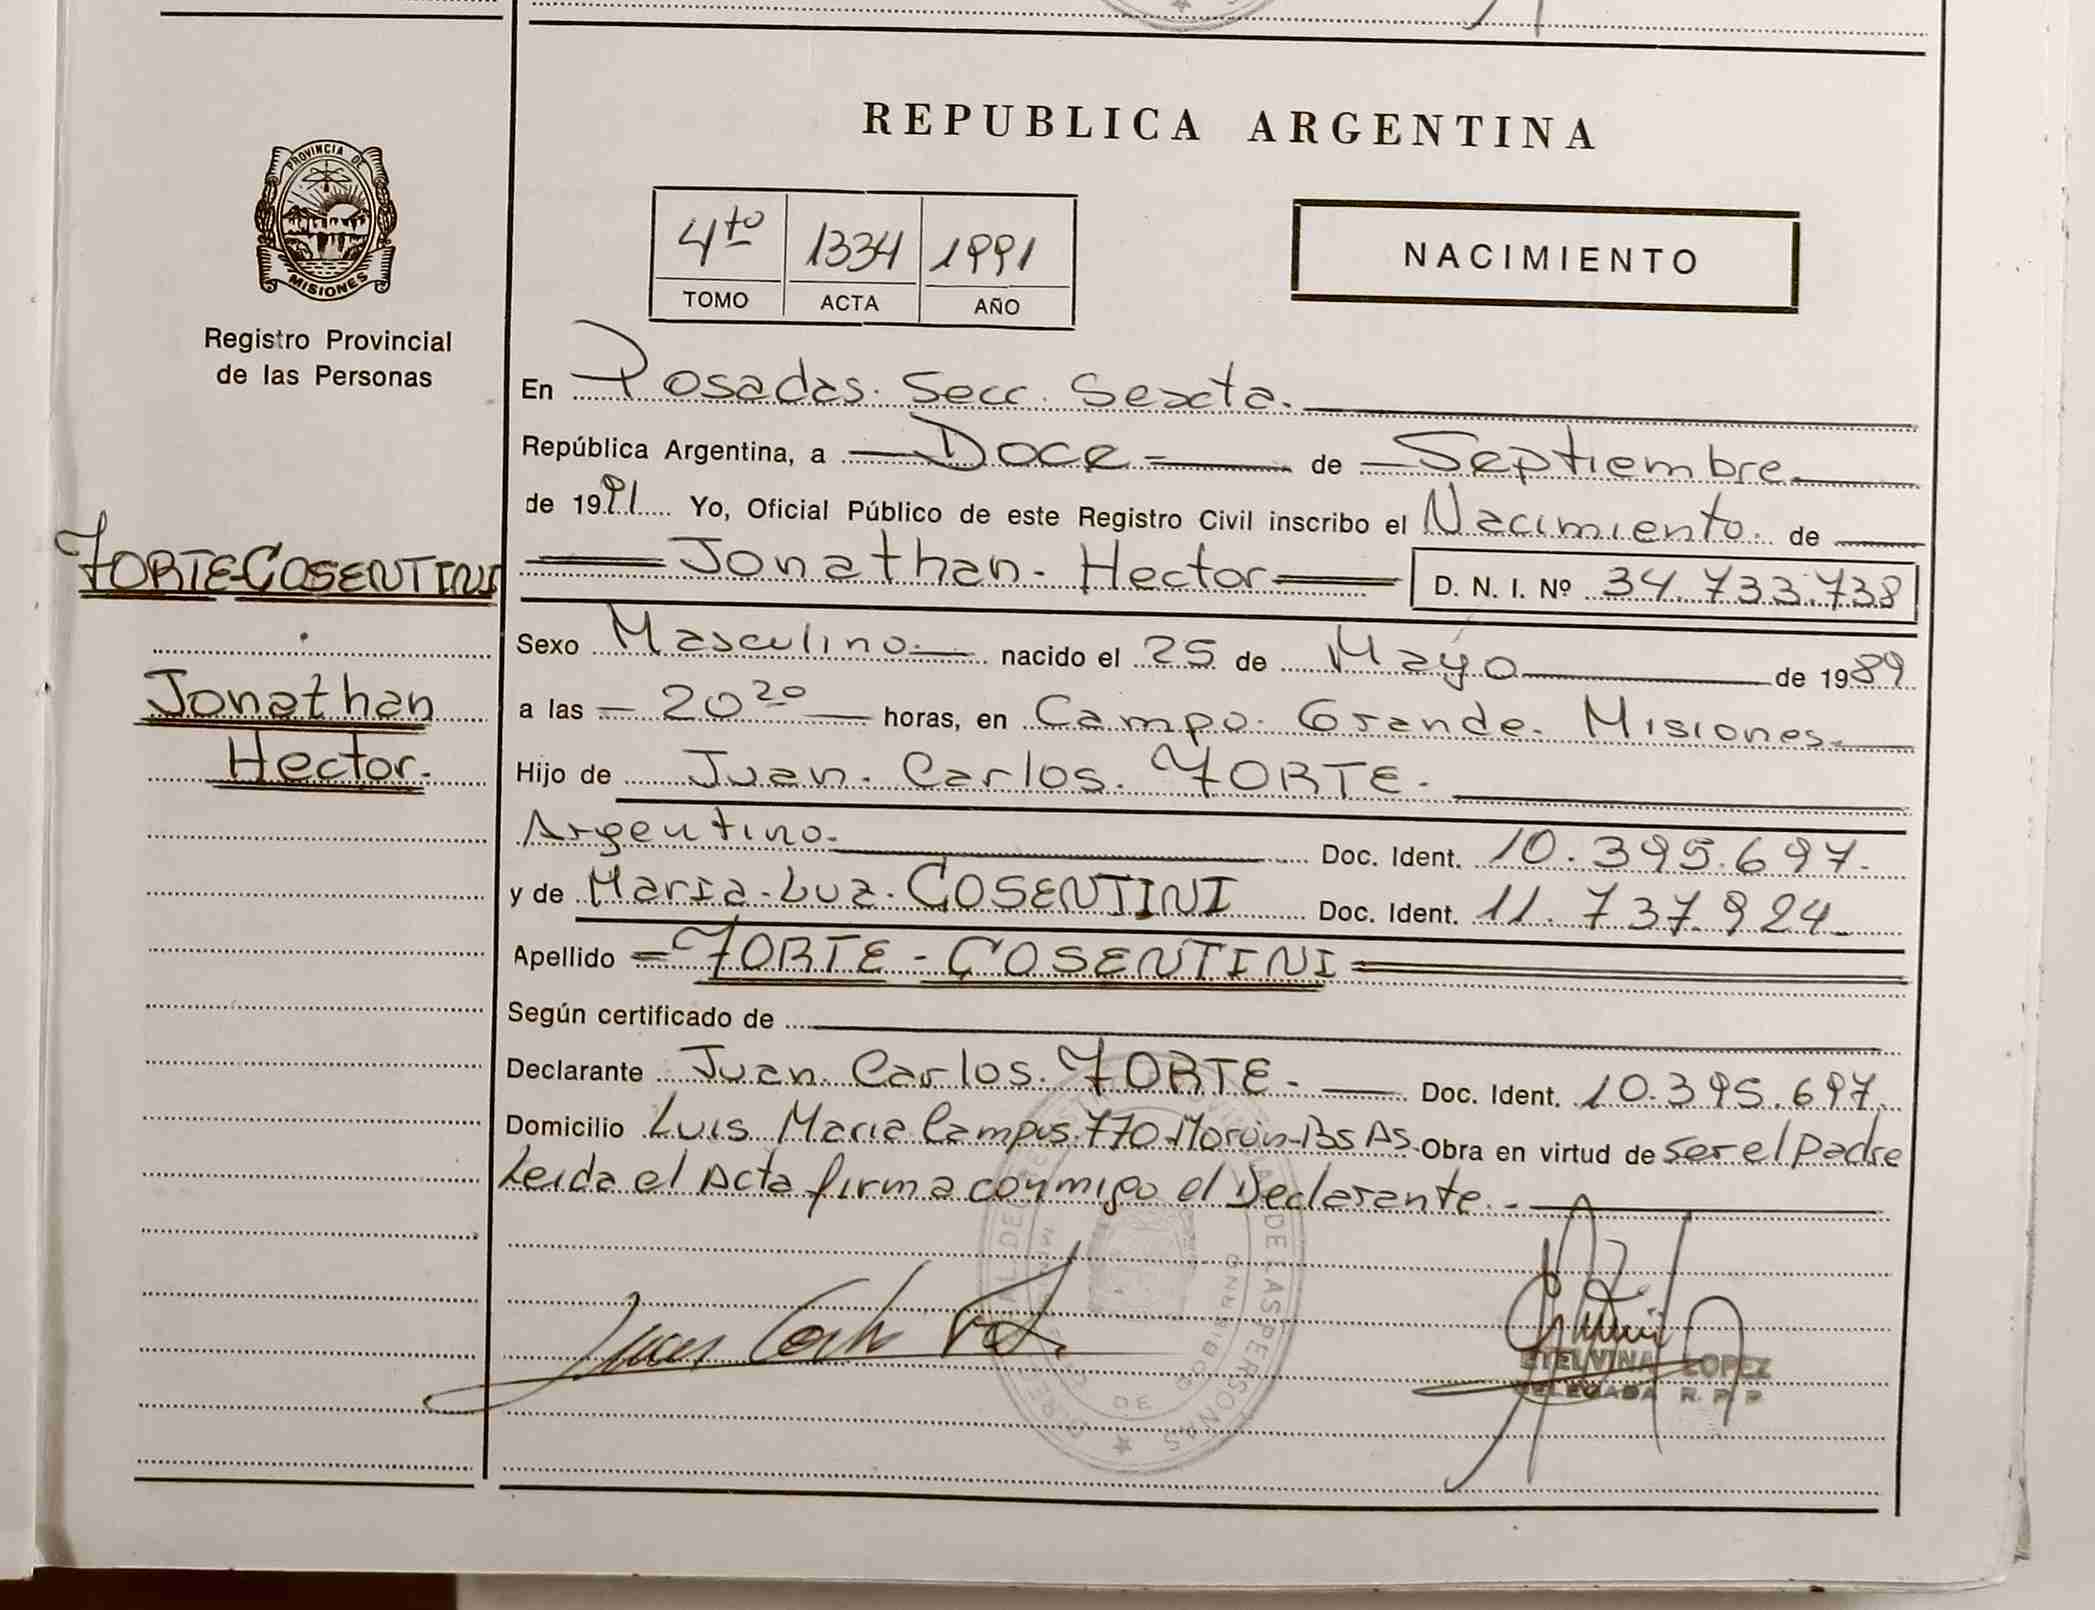 REPUBLICA ARGENTINA
PROVINCIA DE
MISIONES
Registro Provincial
de las Personas
4to 1334 1991
TOMO ACTA AÑO
NACIMIENTO
En Posadas. Secc. Sexta.
República Argentina, a Doce de Septiembre
de 1991 Yo, Oficial Público de este Registro Civil inscribo el Nacimiento de
FORTE-COSENTINI
Jonathan
Hector.
Jonathan. Hector D. N. I. Nº 34.733.738
Sexo Masculino nacido el 25 de Mayo de 1989
a las 20 20 horas, en Campo. Grande. Misiones.
Hijo de Juan. Carlos. FORTE.
Argentino. Doc. Ident. 10.395.697.
y de Maria-Luz. COSENTINI Doc. Ident. 11.737.924
Apellido FORTE - COSENTINI
Según certificado de
Declarante Juan Carlos. FORTE. Doc. Ident. 10.395.697
Domicilio Luis Maria Campos 770 Morón-Bs As. Obra en virtud de ser el padre
Leida el Acta firma conmigo el Declarante.
ETELVINA LOPEZ
DELEGADA R. P. P.
DE LAS PERSONAS
GOBIERNO DE